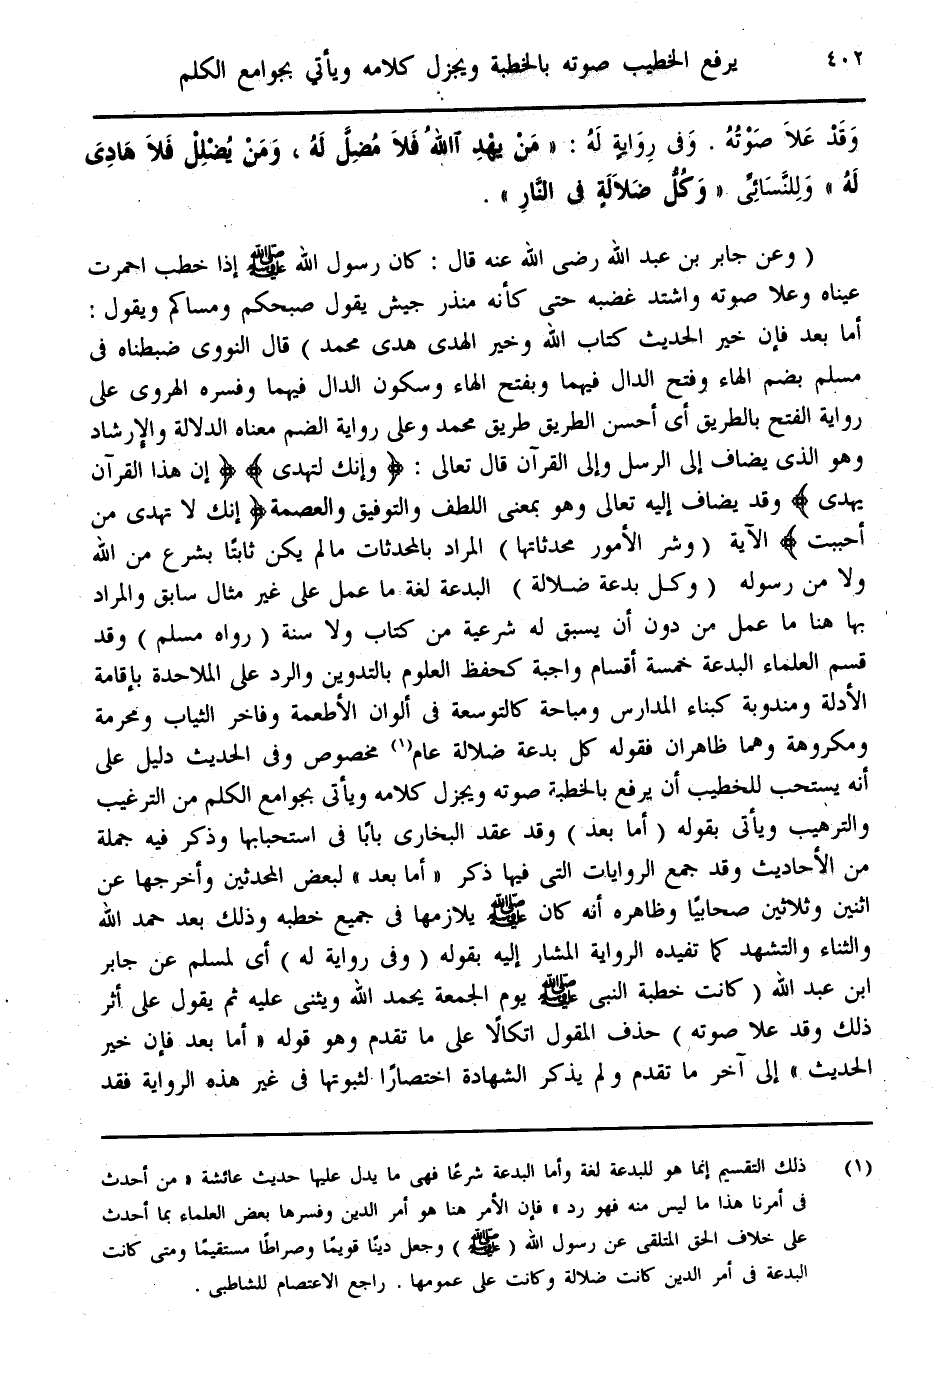 ٤٠٢ يرفع الخطيب صوته بالخطبة ويجزل كلامه ويأتي بجوامع الكلم
وَقَدْ عَلاَ صَوْتُهُ . وَفى رِوَايةٍ لَهُ : « مَنْ يهْدِ ٱللهُ فَلاَ مُضِلَّ لَهُ ، وَمَنْ يُضْلِلْ فَلاَ هَادِىَ
لَهُ » وَلِلنَّسَائِىِّ « وَكُلُّ ضَلاَلَةٍ فى النَّارِ » .
( وعن جابر بن عبد الله رضى الله عنه قال : كان رسول الله ﷺ إذا خطب احمرت
عيناه وعلا صوته واشتد غضبه حتى كأنه منذر جيش يقول صبحكم ومساكم ويقول :
أما بعد فإن خير الحديث كتاب الله وخير الهدى هدى محمد ) قال النووى ضبطناه فى
مسلم بضم الهاء وفتح الدال فيهما وبفتح الهاء وسكون الدال فيهما وفسره الهروى على
رواية الفتح بالطريق أى أحسن الطريق طريق محمد وعلى رواية الضم معناه الدلالة والإرشاد
وهو الذى يضاف إلى الرسل وإلى القرآن قال تعالى : ﴿ وإنك لتهدى ﴾ ﴿ إن هذا القرآن
يهدى ﴾ وقد يضاف إليه تعالى وهو بمعنى اللطف والتوفيق والعصمة ﴿ إنك لا تهدى من
أحببت ﴾ الآية ( وشر الأمور محدثاتها ) المراد بالمحدثات مالم يكن ثابتًا بشرع من الله
ولا من رسوله ( وكل بدعة ضلالة ) البدعة لغة ما عمل على غير مثال سابق والمراد
بها هنا ما عمل من دون أن يسبق له شرعية من كتاب ولا سنة ( رواه مسلم ) وقد
قسم العلماء البدعة خمسة أقسام واجبة كحفظ العلوم بالتدوين والرد على الملاحدة بإقامة
الأدلة ومندوبة كبناء المدارس ومباحة كالتوسعة فى ألوان الأطعمة وفاخر الثياب ومحرمة
ومكروهة وهما ظاهران فقوله كل بدعة ضلالة عام(١) مخصوص وفى الحديث دليل على
أنه يستحب للخطيب أن يرفع بالخطبة صوته ويجزل كلامه ويأتى بجوامع الكلم من الترغيب
والترهيب ويأتى بقوله ( أما بعد ) وقد عقد البخارى بابًا فى استحبابها وذكر فيه جملة
من الأحاديث وقد جمع الروايات التى فيها ذكر « أما بعد » لبعض المحدثين وأخرجها عن
اثنين وثلاثين صحابيًا وظاهره أنه كان ﷺ يلازمها فى جميع خطبه وذلك بعد حمد الله
والثناء والتشهد كما تفيده الرواية المشار إليه بقوله ( وفى رواية له ) أى لمسلم عن جابر
ابن عبد الله ( كانت خطبة النبى ﷺ يوم الجمعة يحمد الله ويثنى عليه ثم يقول على أثر
ذلك وقد علا صوته ) حذف المقول اتكالًا على ما تقدم وهو قوله « أما بعد فإن خير
الحديث » إلى آخر ما تقدم ولم يذكر الشهادة اختصارًا لثبوتها فى غير هذه الرواية فقد
(١) ذلك التقسيم إنما هو للبدعة لغة وأما البدعة شرعًا فهى ما يدل عليها حديث عائشة « من أحدث
فى أمرنا هذا ما ليس منه فهو رد » فإن الأمر هنا هو أمر الدين وفسرها بعض العلماء بما أحدث
على خلاف الحق المتلقى عن رسول الله ( ﷺ ) وجعل دينًا قويمًا وصراطًا مستقيمًا ومتى كانت
البدعة فى أمر الدين كانت ضلالة وكانت على عمومها . راجع الاعتصام للشاطبى .